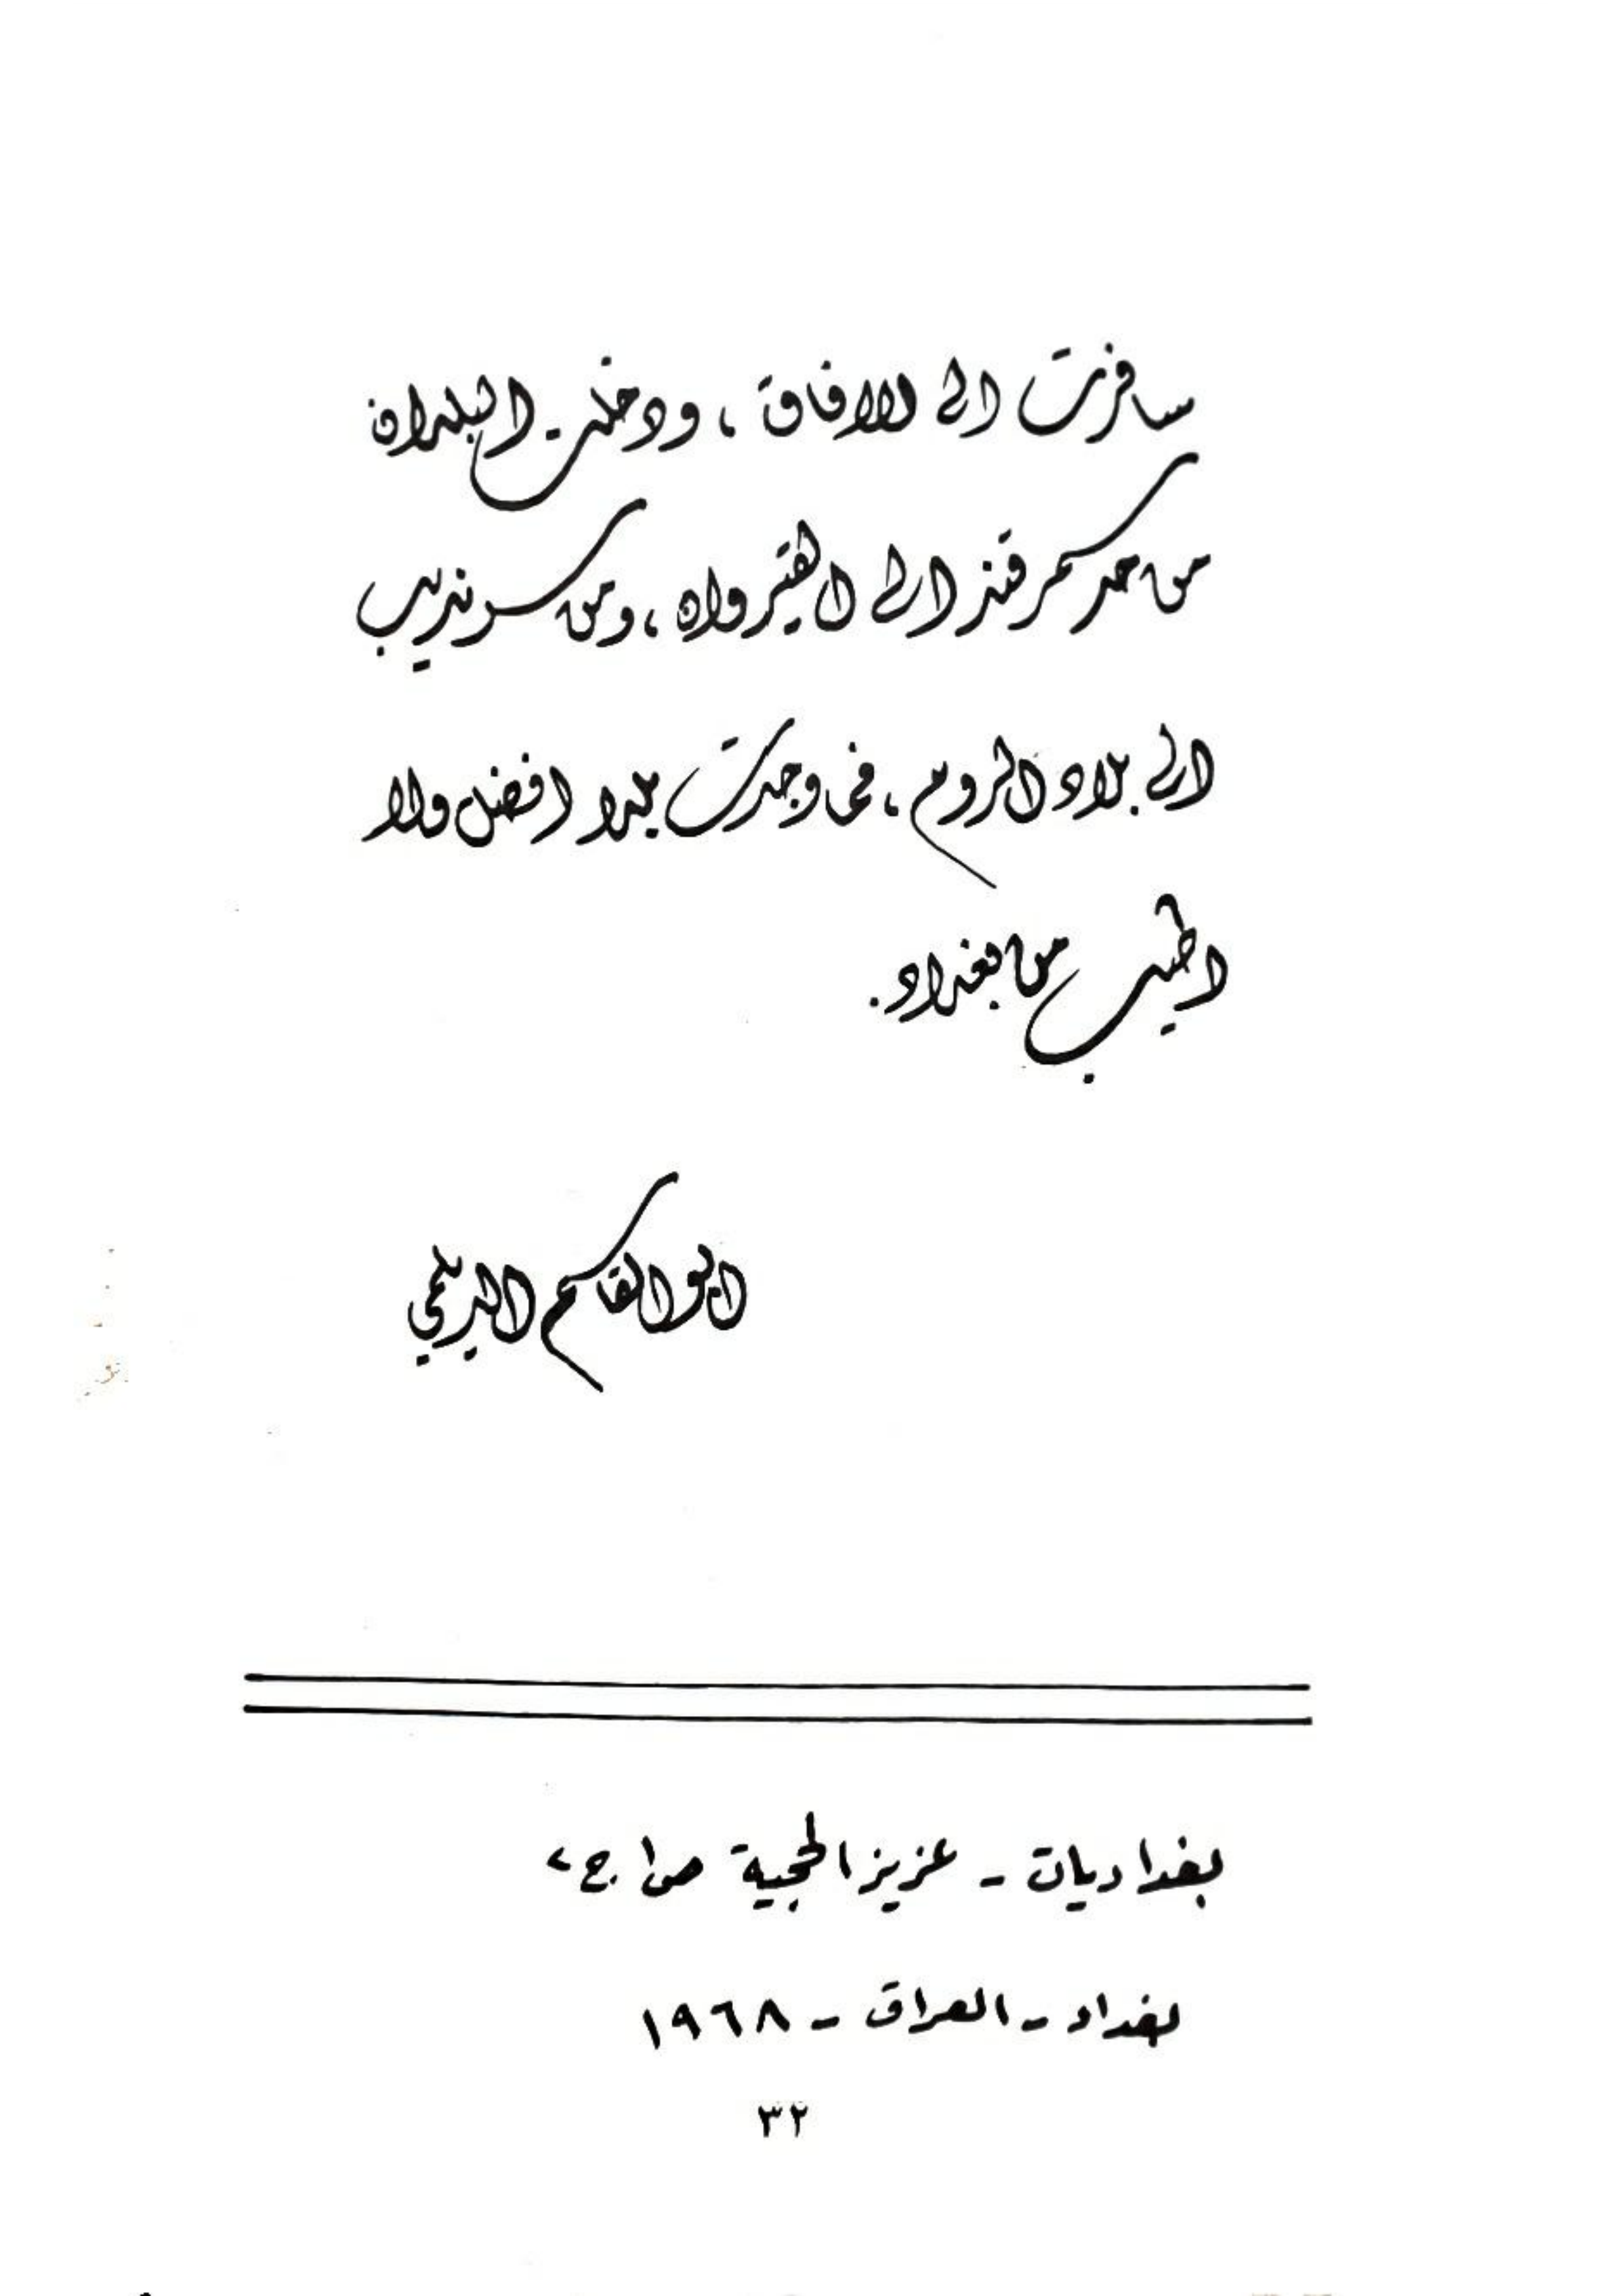 سافرت الى الافاق ، ودخلت البلدان
من حد سمرقند الى القيروان ، ومن سرنديب
الى بلاد الروم ، فما وجدت بلدا افضل ولا
اطيب من بغداد .
ابو القاسم الديلمي
بغداديات - عزيز الحجية ص١ ج٢
بغداد - العراق - ١٩٦٨
٣٢